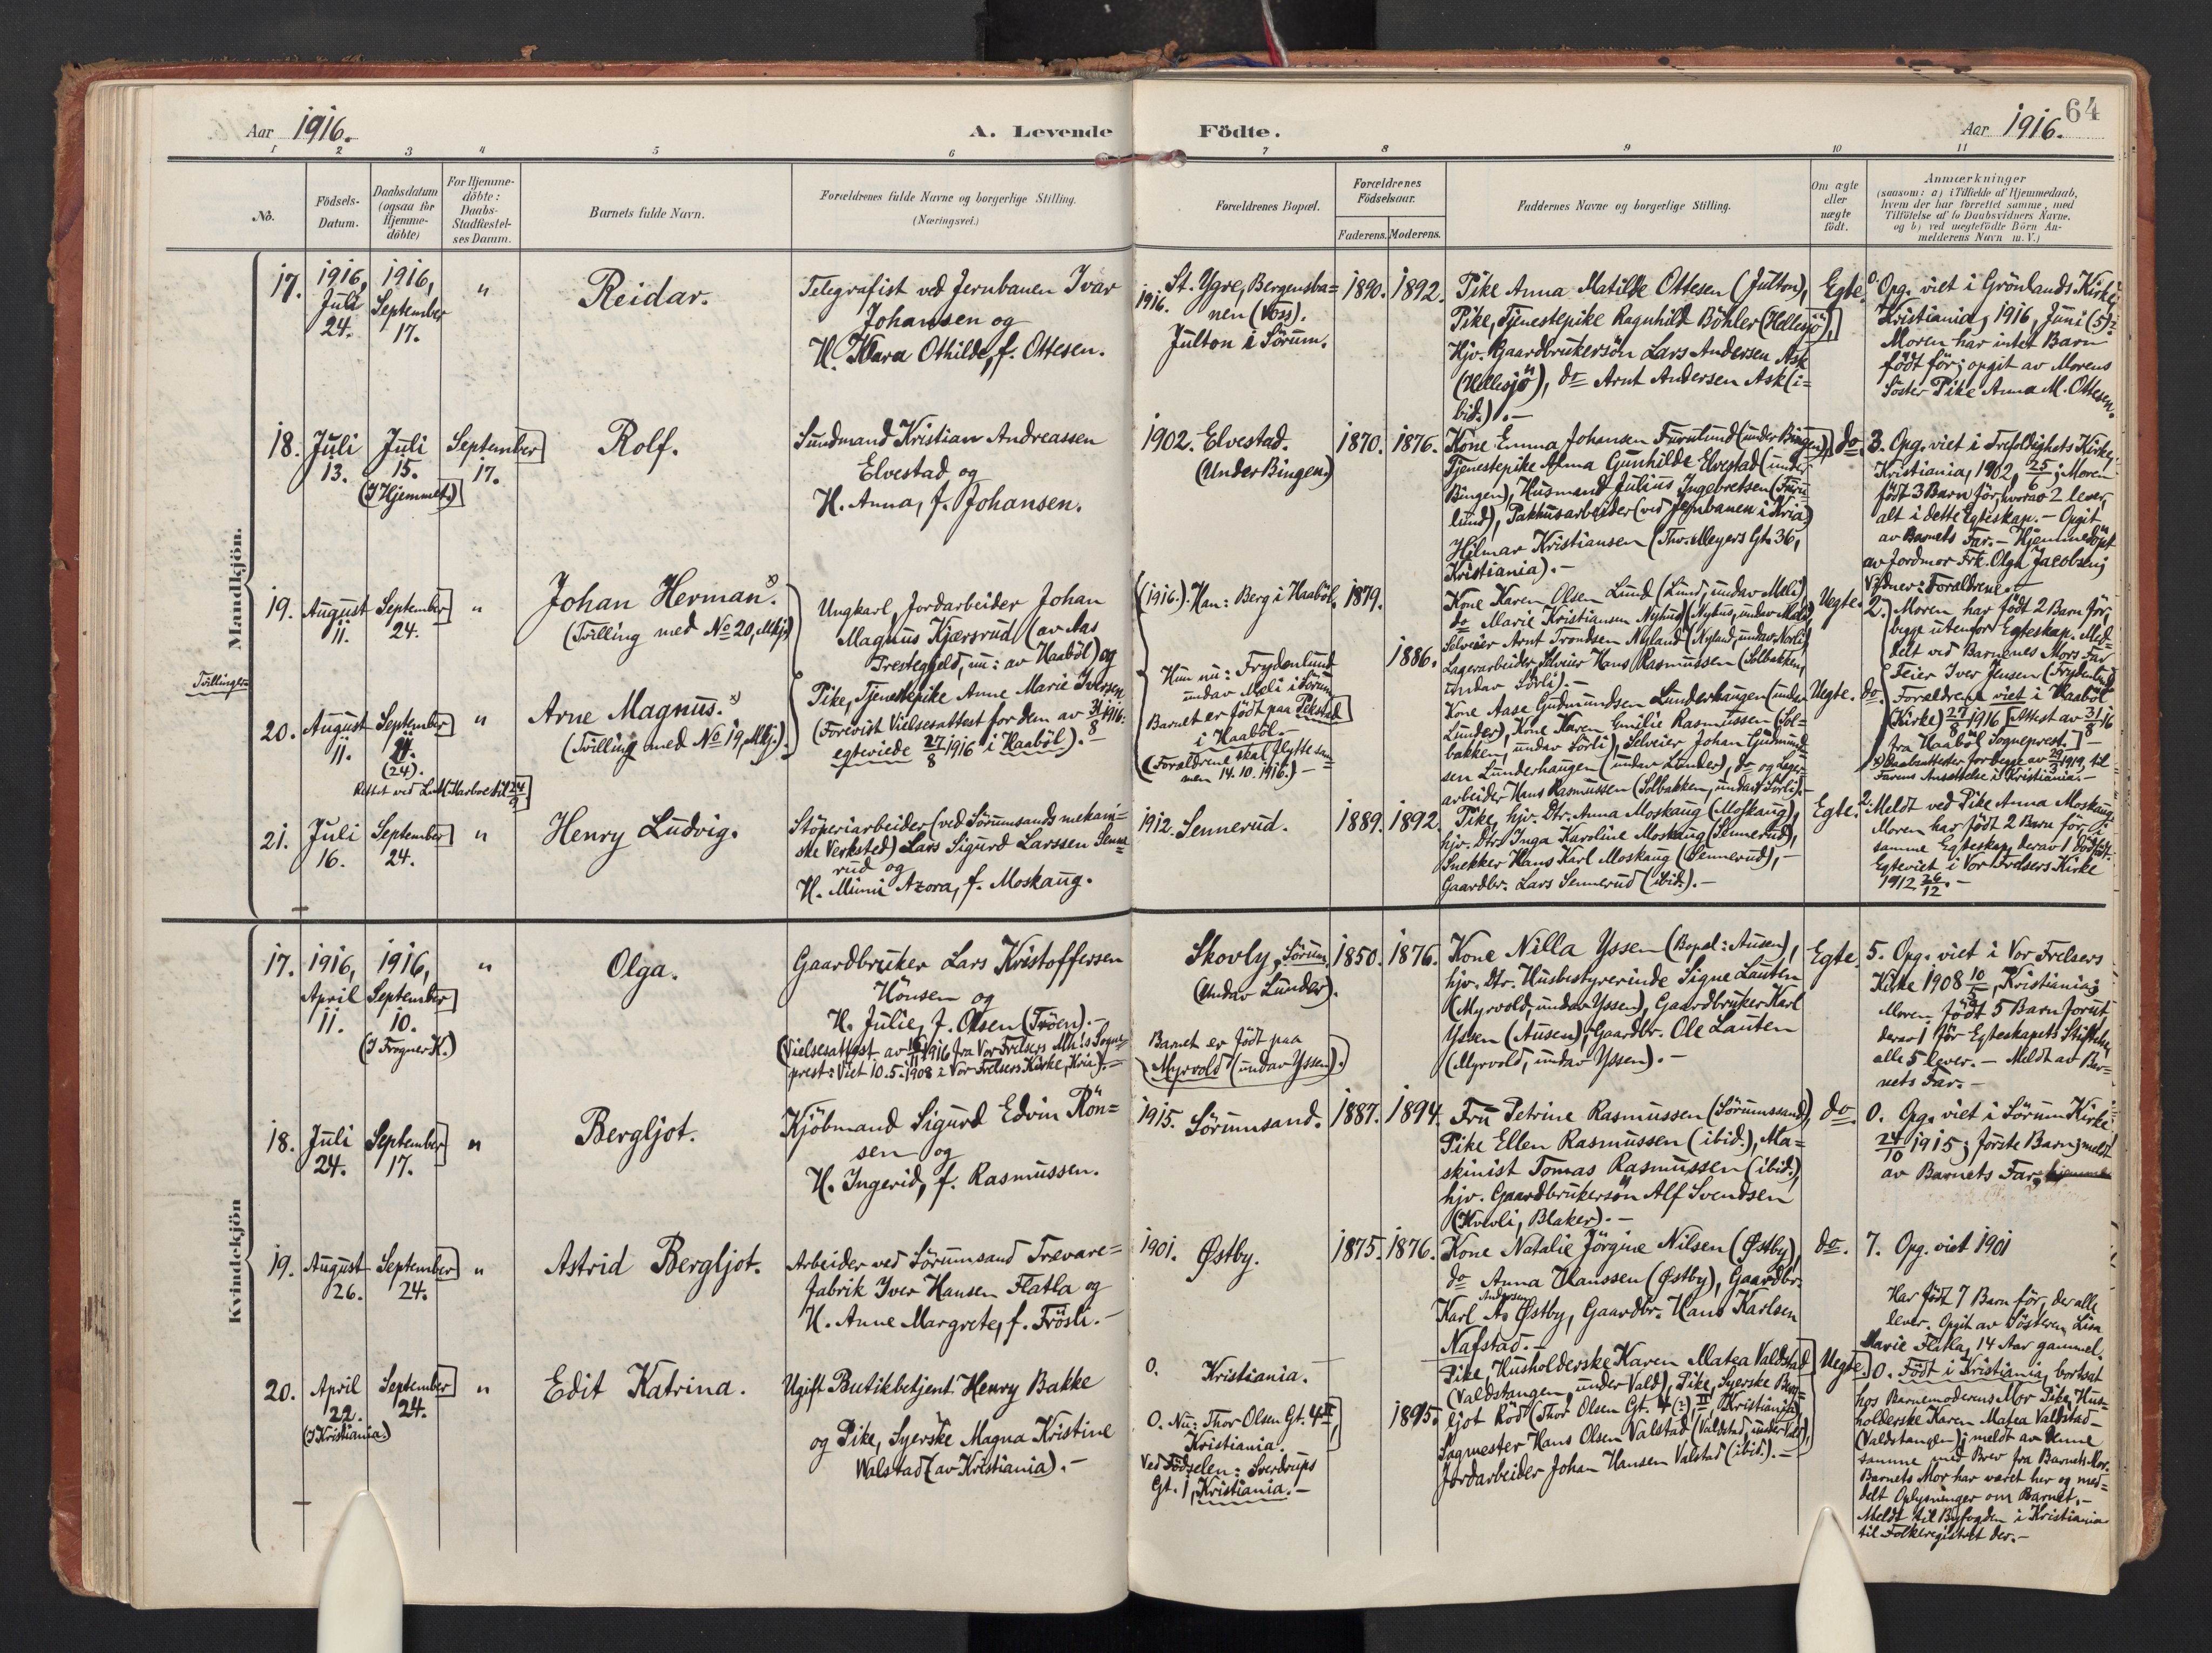 64
Aar 1916.
A. Levende Födte.
Aar 1916.
1 2 3 4 5 6 7 8 9 10 11
No.
Födsels-
Datum.
Daabsdatum
(ogsaa för
Hjemme-
döbte)
For Hjemme-
döbte:
Daabs-
Stadfæstel-
ses Datum.
Barnets fulde Navn.
Forældrenes fulde Navne og borgerlige Stilling.
(Næringsvei.)
Forældrenes Bopæl.
Forældrenes
Födselsaar.
Faderens. Moderens.
Faddernes Navne og borgerlige Stilling.
Om ægte
eller
uægte
födt.
Anmærkninger
(saasom: a) i Tilfælde af Hjemmedaab,
hvem der har forrettet samme, med
Tilföielse af to Daabsvidners Navne.
og b) ved uægtefödte Börn An-
melderens Navn m. V.)
Mandkjön.
17.
1916,
Juli
24.
1916,
September
17.
"
Reidar.
Telegrafist ved Jernbanen Ivar
Johansen og
H. Klara Othilde, f. Ottesen.
1916.
St. Ygre, Bergensba=
nen (Voss).
Julton i Sörum.
1890. 1892.
Pike Anna Matilde Ottesen (Julton),
Pike, Tjenestepike Ragnhild Böhler (Hellesjö),
Hjv. Gaardbrukersön Lars Andersen Ask
(Hellesjö), do Arnt Andersen Ask (i-
bid.).-
Egte.
0. Opg. viet i Grönlands Kirke,
Kristiania, 1916, Juni (5)?
Moren har intet Barn
födt för; opgit av Morens
Söster Pike Anna M. Ottesen.
18.
Juli
13.
Juli
15.
(I Hjemmet.)
September
17.
Rolf.
Sundmand Kristian Andreassen
Elvestad og
H. Anna, f. Johansen.
1902. Elvestad.
(Under Bingen)
1870. 1876.
Kone Emma Johansen Furulund (under Bingen),
Tjenestepike Anna Gunhilde Elvestad (under
Bingen), Husmand Julius Ingebretsen (Furu
lund), Pakhusarbeider (ved Jernbanen i Kria)
Hilmar Kristiansen (Thv. Meyers Gt. 36,
Kristiania).-
do.
3. Opg. viet i Trefoldighets Kirke,
Kristiania, 1902, 25/6; Moren
födt 3 Barn för, hvorav 2 lever,
alt i dette Egteskap. - Opgit
av Barnets Far. - Hjemmedöpt
av Jordmor Frk. Olga Jacobsen;
Vidner: Foraldrene.-
Tvillinger
19.
August
11.
September
24.
"
Johan Herman. x)
(Tvilling med No 20, Mkj.)
Ungkarl, Jordarbeider Johan
Magnus Kjærsrud (av Aas
Prestegjeld, nu: av Haaböl) og
Pike, Tjenestepike Anne Marie Iversen
(Forevist Vielsesattest for dem av 31/8 1916.
egteviede 27/8 1916 i Haaböl).-
(1916.). Han: Berg i Haaböl.
Hun nu: Frydenlund
undav Meli i Sörum
Barnet er födt paa Tekstad
i Haaböl.-
(Foraldrene skal flytte sam=
men 14.10.1916.)-
1879.
1886.
Kone Karen Olsen Lund (Lund, undav Meli),
do Marie Kristiansen Nyhus (Nyhus, undav Meli),
Selveier Arnt Trondsen Nyland (Nyland, undav Norli),
Lagerarbeider, Selveier Hans Rasmussen (Solbakken,
undav Sörli).-
Uegte.
2. Moren har födt 2 Barn för,
begge utenfor Egteskap. Med-
delt ved Barnenes Mors Far
Feier Iver Jensen (Frydenlund)
Foraldrene viet i Haaböl
(Kirke) 27/8 1916 [Attest av 31/8 16
fra Haaböl Sogneprest.]-
x) Daabsattester for begge av 29/3 1919, til
Farens Ansættelse i Kristiania.-
20.
August
11.
September
(24).
Rettet ved
"
Arne Magnus. x)
(Tvilling med No 19, Mkj.).
Kone Aase Gudmundsen Lunderhaugen (undav
Lunder), Kone Karen Emilie Rasmussen (Sol-
bakken, undav Sörli), Selveier Johan Gudmund
sen Lunderhaugen (undav Lunder), do og Lager-
arbeider Hans Rasmussen (Solbakken, undav Sörli).-
Uegte. do.
21.
Juli
16.
September
24.
"
Henry Ludvig.
Stöperiarbeider (ved Sörumsands mekani=
ske Verksted) Lars Sigurd Larssen Senne
rud og
H. Mimi Azora, f. Moskaug.
1912. Sennerud.
1889. 1892.
Pike, hjv. Dtr. Anna Moskaug (Moskaug),
hjv. Dtr. Inga Karoline Moskaug (Sennerud),
Snekker Hans Karl Moskaug (Sennerud),-
Gaardbr. Lars Sennerud (ibid.).-
Egte.
2. Meldt ved Pike Anna Moskaug.
Moren har födt 2 Barn för, i
samme Egteskap, derav 1 dödfödt.
Egteviet i Vor Frelsers Kirke
1912 26/12.-
Kvindekjön
17.
1916,
April
11.
1916,
September
10.
(I Frogner K.)
"
Olga.
Gaardbruker Lars Kristoffersen
Hönsen og
H. Julie, f. Olsen (Tröen).-
(Vielsesattest av 1916 fra Vor Frelsers Mh.s Sogne
prest: Viet 10.5.1908 i Vor Frelsers Kirke, Kria).-
Skovly, Sörum,
(Undav Lunder).
Barnet er födt paa
Myrvold (undav Yssen).
1850. 1876.
Kone Nilla Yssen (Bopæl: Ausen),
hjv. Dtr. Husbestyrerinde Signe Lauten
(Myrvold, undav Yssen), Gaardbruker Karl
Yssen (Ausen), Gaardbr. Ole Lauten
(Myrvold, undav Yssen).-
Egte.
5. Opg. viet i Vor Frelsers
Kirke 1908 10/5, Kristiania;
Moren födt 5 Barn forut
derav 1 för Egteskapets Stiftelse,
alle 5 lever. - Meldt av Bar=
nets Far.-
18.
Juli
24.
September
17.
"
Bergljot.
Kjöbmand Sigurd Edvin Rön=
sen og
H. Ingerid, f. Rasmussen.
1915. Sörumsand.
1887. 1894.
Fru Petrine Rasmussen (Sörumssand),
Pike Ellen Rasmussen (ibid.), Ma=
skinist Tomas Rasmussen (ibid.),
hjv. Gaardbrukersön Alf Svendsen
(Kvevli, Blaker).-
do.
0. Opg. viet i Sörum Kirke
24/10 1915; förste Barn; meldt
av Barnets Far;
19.
August
26.
September
24.
"
Astrid Bergljot.
Arbeider ved Sörumsand Trævare=
fabrik Iver Hansen Flatla og
H. Anne Margrete, f. Frösli.-
1901. Østby.
1875. 1876.
Kone Natalie Jörgine Nilsen (Østby),
do Anna Hanssen (Østby), Gaardbr.
Karl A. Andersen Østby, Gaardbr. Hans Karlsen
Nafstad.-
do.
7. Opg. viet 1901
Har födt 7 Barn för, der alle
lever. Opgit av Sösteren Lisa
Marie Flatla, 14 Aar gammel.
20.
April
22.
(I Kristiania.)
September
24.
"
Edit Katrina.
Ugift Butikbetjent Henry Bakke
og Pike, Syerske Magna Kristine
Walstad (av Kristiania).-
0. Kristiania.
0. Nu: Thor Olsen Gt. 4 II,
Kristiania.
Ved Födselen: Sverdrups
Gt. 1, Kristiania.-
1895.
Pike, Husholderske Karen Matea Valdstad
(Valdstangen, under Vald), Pike, Syerske Berg=
ljot Röd (Thor Olsen Gt. 4 (?), II, Kristiania),
Sagmester Hans Olsen Valstad (Valdstad, under Vald),
Jordarbeider Johan Hansen Valstad (ibid.).-
Uegte.
0. Födt i Kristiania, bortsat
hos Barnemoderens Mor Pike, Hus=
holderske Karen Matea Valdstad
(Valdstangen); meldt av denne
samme med Brev fra Barnets Mor.
Barnets Mor har været her og med=
delt Oplysninger om Barnet.-
Meldt til Byfogden i Kristiania
til Folkeregistret der.-